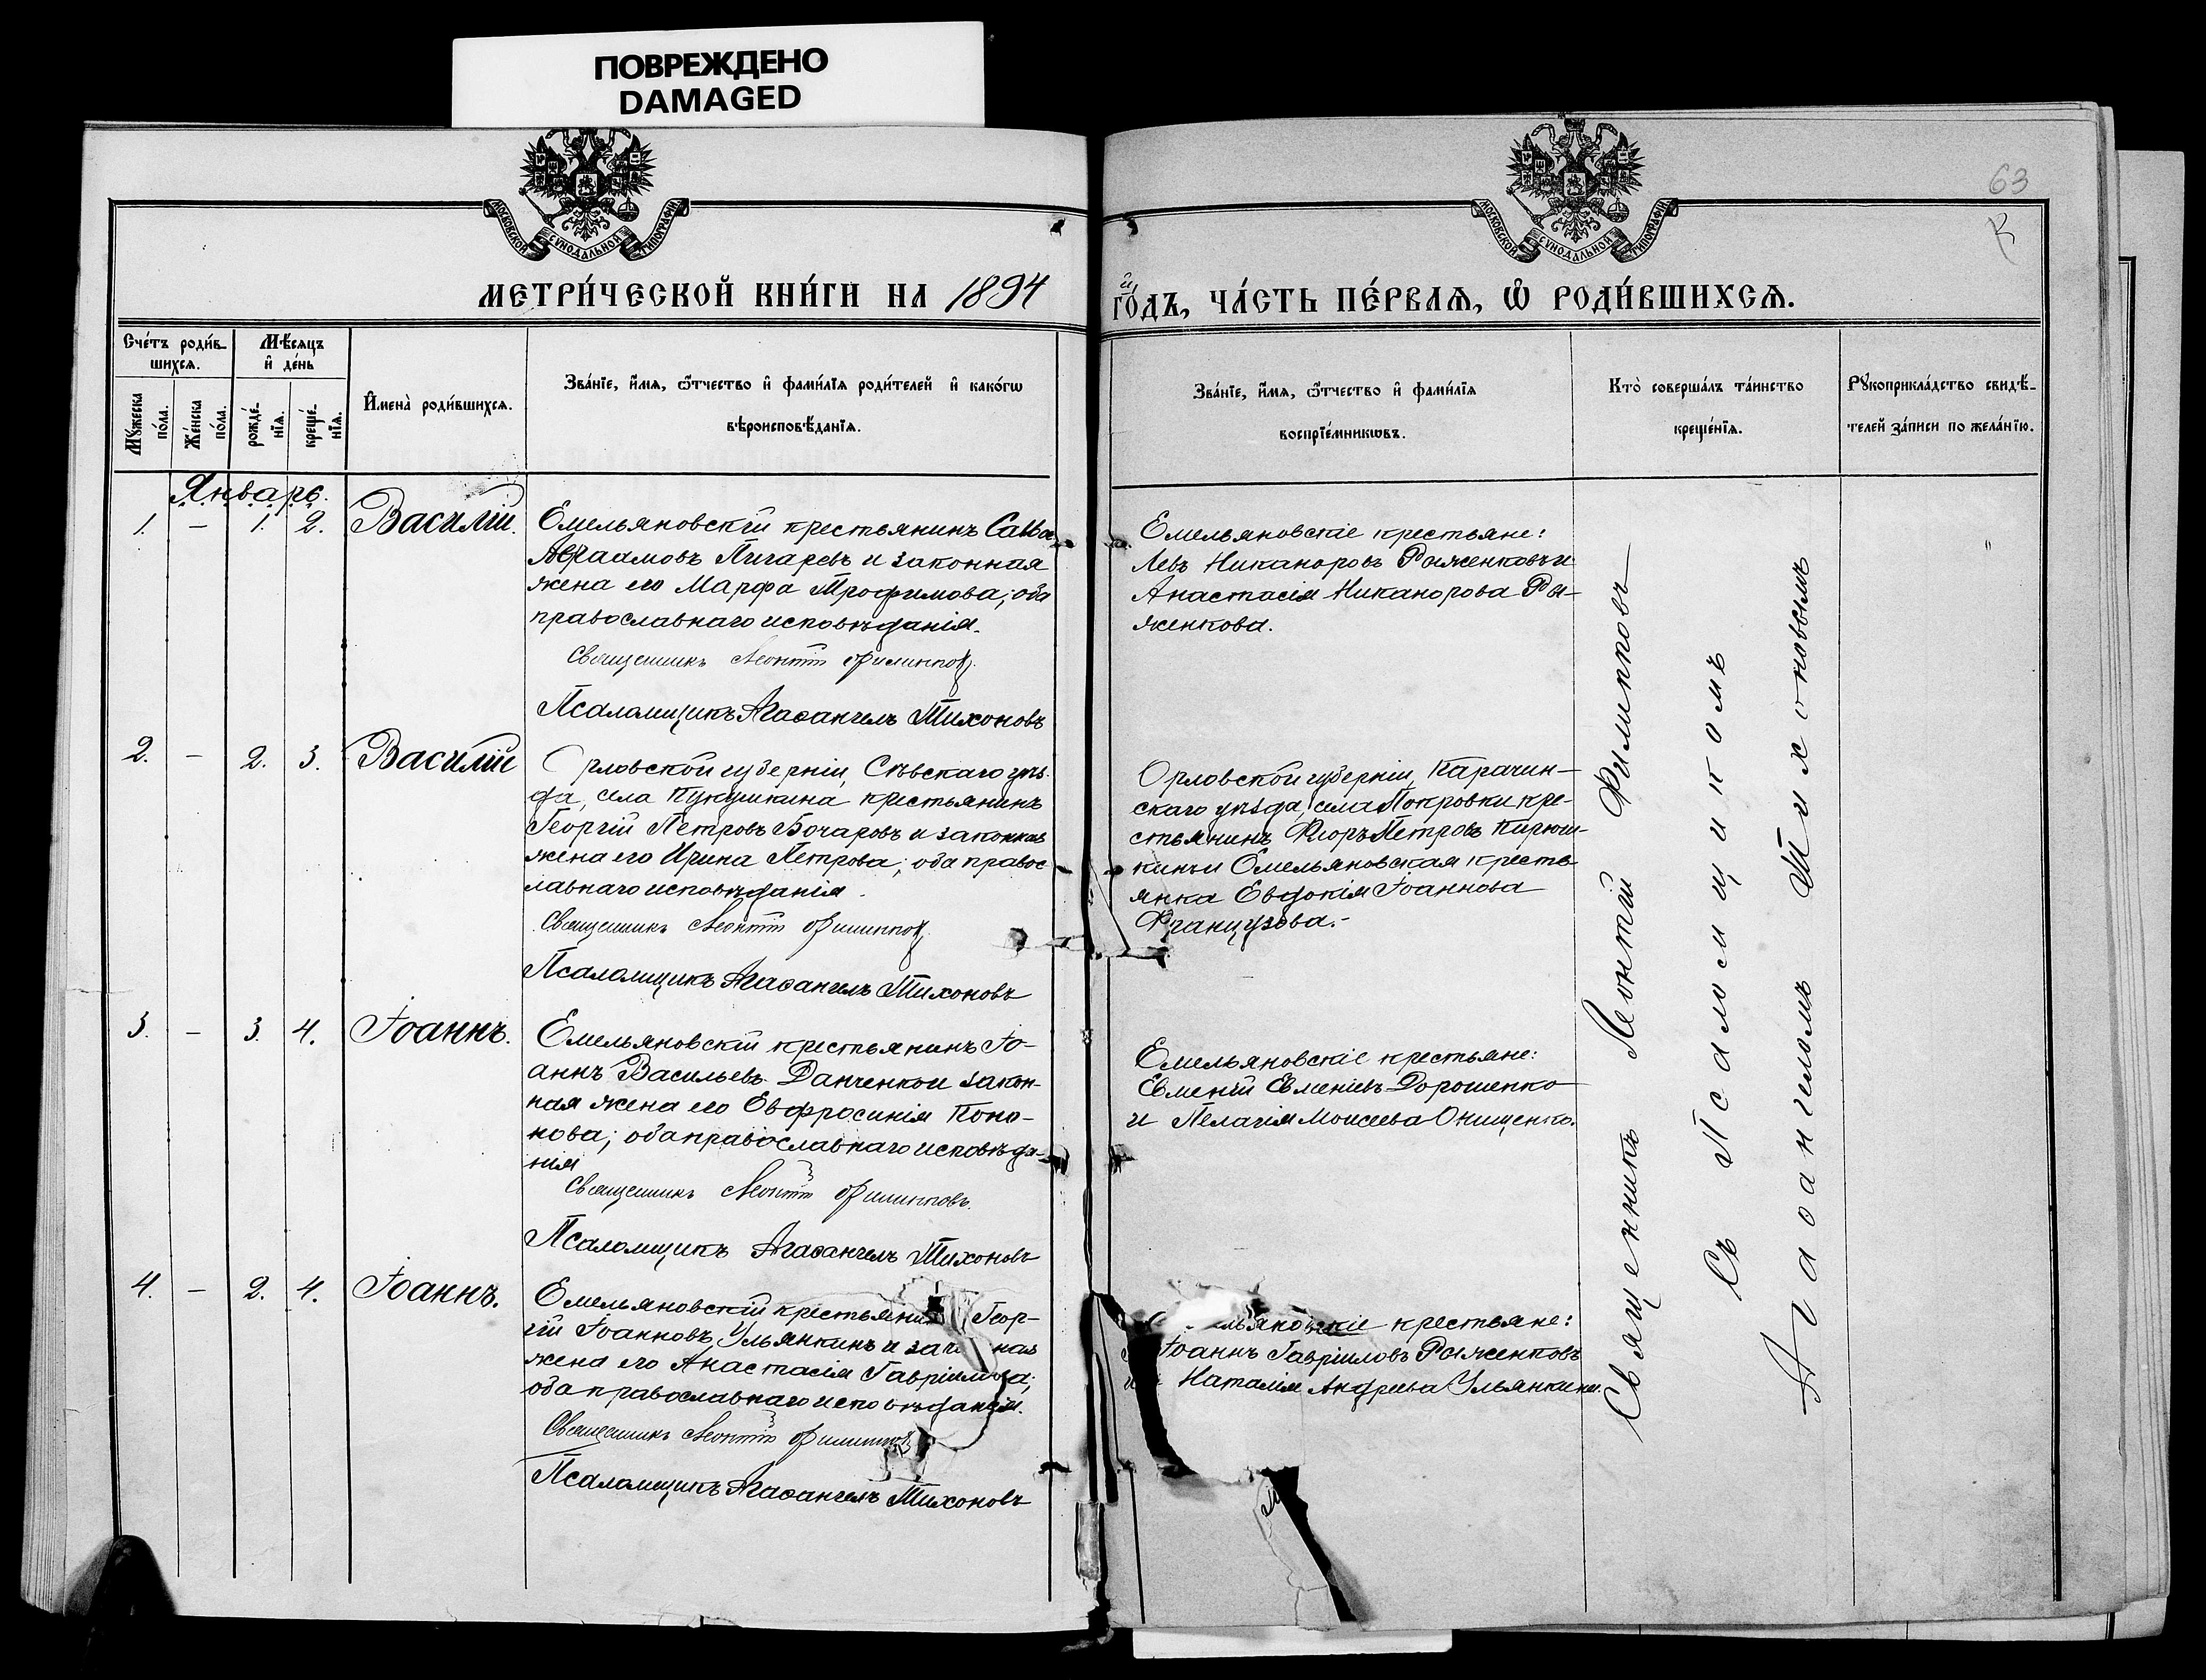 ПОВРЕЖДЕНО
DAMAGED
МОСКОВСКОЙ СѴНОДАЛЬНОЙ ТИПОГРАФІИ
МОСКОВСКОЙ СѴНОДАЛЬНОЙ ТИПОГРАФІИ
63
МЕТРИ́ЧЕСКОЙ КНИ́ГИ НА 1894
й ГО́ДЪ, ЧА́СТЬ ПЕ́РВАЯ, Ѽ РОДИ́ВШИХСЯ.
Сче́тъ роди́в-
шихся.
Мѣ́сяцъ
и҆ де́нь
Мꙋ́жеска
по́ла.
Же́нска
по́ла.
рожде́-
нїя.
креще́-
нїя.
И҆мена̀ роди́вшихся.
Зва́нїе, и҆́мя, ѻ҆́тчество и҆ фами́лїя роди́телей и҆ како́гѡ
вѣроисповѣ́данїя.
Зва́нїе, и҆́мя, ѻ҆́тчество и҆ фами́лїя
воспрїе́мникѡвъ.
Кто̀ соверша́лъ та́инство
креще́нїя.
Рꙋкоприкла́дство свидѣ́-
телей за́писи по жела́нїю.
Январь.
1. – 1. 2. Василій.
Емельяновскій крестьянинъ Савва
Авраамовъ Пигаревъ и законная
жена его Марфа Трофимова; оба
православнаго исповѣданія.
Священникъ Леонтій Филипповъ.
Псаломщикъ Агаѳангелъ Тихоновъ
Емельяновскіе крестьяне:
Левъ Никаноровъ Рыженковъ и
Анастасія Никанорова Ры-
женкова.
2. – 2. 3. Василій
Орловской губерніи, Сѣвскаго уѣз-
да, села Кукушкина крестьянинъ
Георгій Петровъ Бочаровъ и законная
жена его Ирина Петрова; оба правос-
лавнаго исповѣданія.
Священникъ Леонтій Филипповъ.
Псаломщикъ Агаѳангелъ Тихоновъ
Орловской губерніи, Карачин-
скаго уѣзда, села Покровки кре-
стьянинъ Ѳеоръ Петровъ Кирюш-
кинъ и Емельяновская кресть-
янка Евдокія Іоаннова
Французова.-
3. – 3. 4. Іоаннъ.
Емельяновскій крестьянинъ Іо-
аннъ Васильевъ Данченко и закон-
ная жена его Евфросинія Коно-
нова; оба православнаго исповѣда-
нія
Священникъ Леонтій Филипповъ.
Псаломщикъ Агаѳангелъ Тихоновъ
Емельяновскіе крестьяне:
Евменій Евменіевъ Дорошенко
и Пелагія Моисеева Онищенко.
4. – 2. 4. Іоаннъ.
Емельяновскій крестьянин Геор-
гій Іоанновъ Ульянкинъ и зако ная
жена его Анастасія Гавріилова;
оба православнаго исповѣданія.
Священникъ Леонтій Филипповъ
Псаломщикъ Агаѳангелъ Тихоновъ
льяновскіе крестьяне:
Іоаннъ Гавріиловъ Рыженковъ
и Наталія Андреева Ульянкина.
Священникъ Леонтій Филипповъ
Съ Псаломщикомъ
Агаѳангеломъ Тихоновымъ